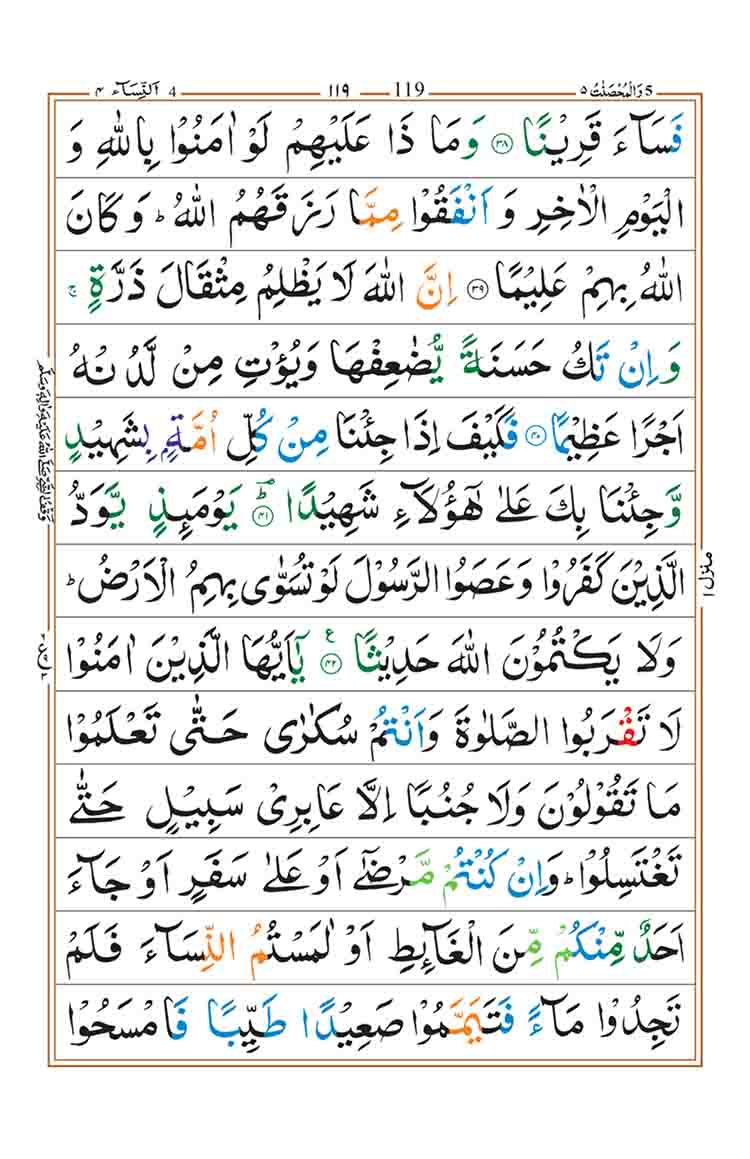 5 وَالْمُحْصَنٰتُ ۵
119 ۱۱۹
4 اَلنِّسَآء ۴
فَسَآءَ قَرِيْنًا ﴿۳۸﴾ وَمَا ذَا عَلَيْهِمْ لَوْ اٰمَنُوْا بِاللّٰهِ وَ
الْيَوْمِ الْاٰخِرِ وَ اَنْفَقُوْا مِمَّا رَزَقَهُمُ اللّٰهُ ؕ وَ كَانَ
اللّٰهُ بِهِمْ عَلِيْمًا ﴿۳۹﴾ اِنَّ اللّٰهَ لَا يَظْلِمُ مِثْقَالَ ذَرَّةٍ ۚ
وَ اِنْ تَكُ حَسَنَةً يُّضٰعِفْهَا وَيُؤْتِ مِنْ لَّدُنْهُ
اَجْرًا عَظِيْمًا ﴿۴۰﴾ فَكَيْفَ اِذَا جِئْنَا مِنْ كُلِّ اُمَّةٍۭ بِشَهِيْدٍ
وَّجِئْنَا بِكَ عَلٰى هٰٓؤُلَآءِ شَهِيْدًا ﴿۴۱﴾ؕ يَوْمَئِذٍ يَّوَدُّ
الَّذِيْنَ كَفَرُوْا وَعَصَوُا الرَّسُوْلَ لَوْ تُسَوّٰى بِهِمُ الْاَرْضُ ؕ
وَلَا يَكْتُمُوْنَ اللّٰهَ حَدِيْثًا ﴿۴۲﴾ ع يٰٓاَيُّهَا الَّذِيْنَ اٰمَنُوْا
لَا تَقْرَبُوا الصَّلٰوةَ وَاَنْتُمْ سُكٰرٰى حَتّٰى تَعْلَمُوْا
مَا تَقُوْلُوْنَ وَلَا جُنُبًا اِلَّا عَابِرِيْ سَبِيْلٍ حَتّٰى
تَغْتَسِلُوْا ؕ وَاِنْ كُنْتُمْ مَّرْضٰٓى اَوْ عَلٰى سَفَرٍ اَوْ جَآءَ
اَحَدٌ مِّنْكُمْ مِّنَ الْغَآئِطِ اَوْ لٰمَسْتُمُ النِّسَآءَ فَلَمْ
تَجِدُوْا مَآءً فَتَيَمَّمُوْا صَعِيْدًا طَيِّبًا فَامْسَحُوْا
منزل ۱